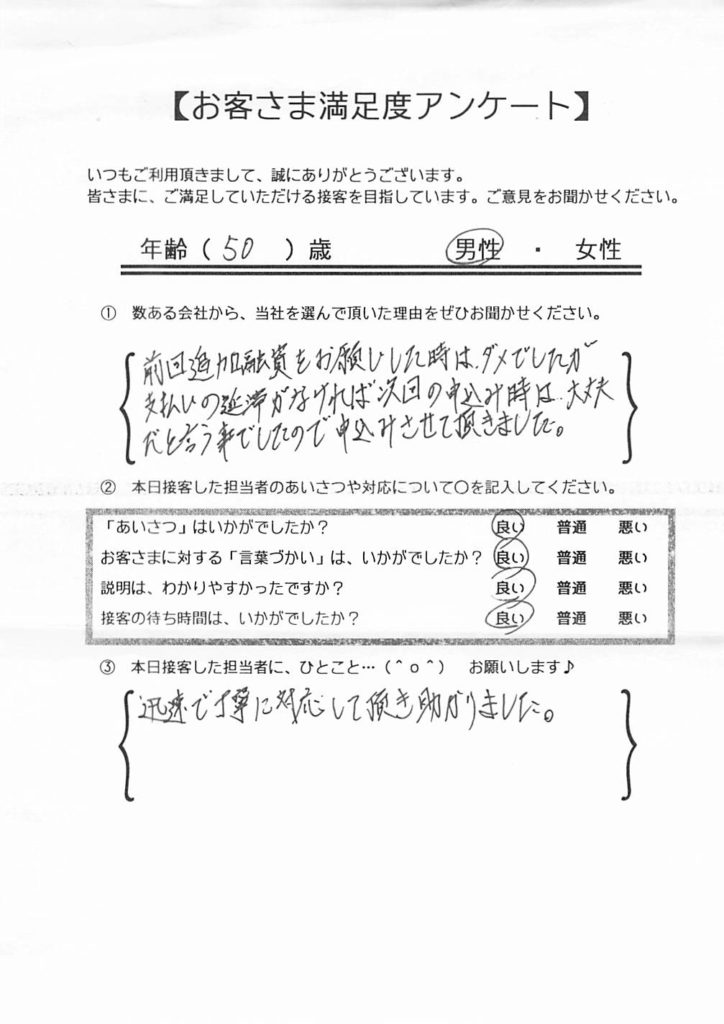 【お客さま満足度アンケート】
いつもご利用頂きまして、誠にありがとうございます。
皆さまに、ご満足していただける接客を目指しています。ご意見をお聞かせください。
年齢（ 50 ）歳 男性 ・ 女性
① 数ある会社から、当社を選んで頂いた理由をぜひお聞かせください。
前回追加融資をお願いした時は、ダメでしたが
支払いの延滞がなければ次回の申込み時は、大丈夫
だと言う事でしたので申込みさせて頂きました。
② 本日接客した担当者のあいさつや対応について〇を記入してください。
「あいさつ」はいかがでしたか？ 良い 普通 悪い
お客さまに対する「言葉づかい」は、いかがでしたか？ 良い 普通 悪い
説明は、わかりやすかったですか？ 良い 普通 悪い
接客の待ち時間は、いかがでしたか？ 良い 普通 悪い
③ 本日接客した担当者に、ひとこと…（＾ｏ＾） お願いします♪
迅速で丁寧に対応して頂き助かりました。